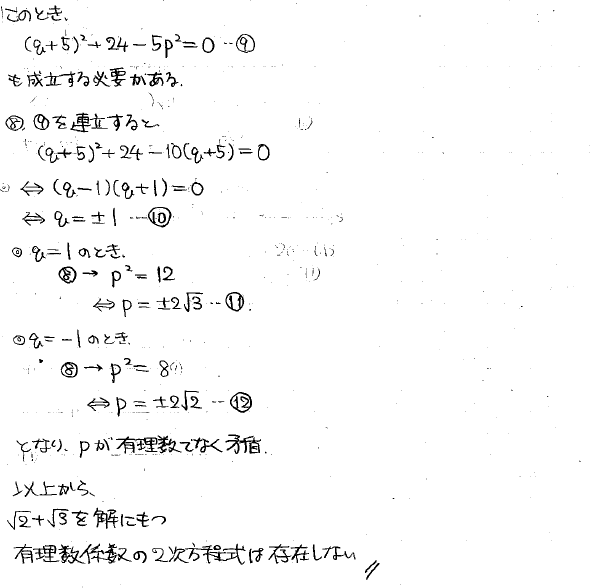 このとき、
(q+5)²+24-5p²=0 …⑨
も成立する必要がある.
⑧,⑨を連立すると
(q+5)²+24-10(q+5)=0
⇔ (q-1)(q+1)=0
⇔ q=±1 …⑩
◎ q=1のとき、
⑧→ p²=12
⇔ p=±2√3 …⑪.
◎ q=-1のとき、
⑧→ p²=8
⇔ p=±2√2 …⑫
となり、pが有理数でなく矛盾.
以上から、
√2+√3を解にもつ
有理数係数の2次方程式は存在しない 〃